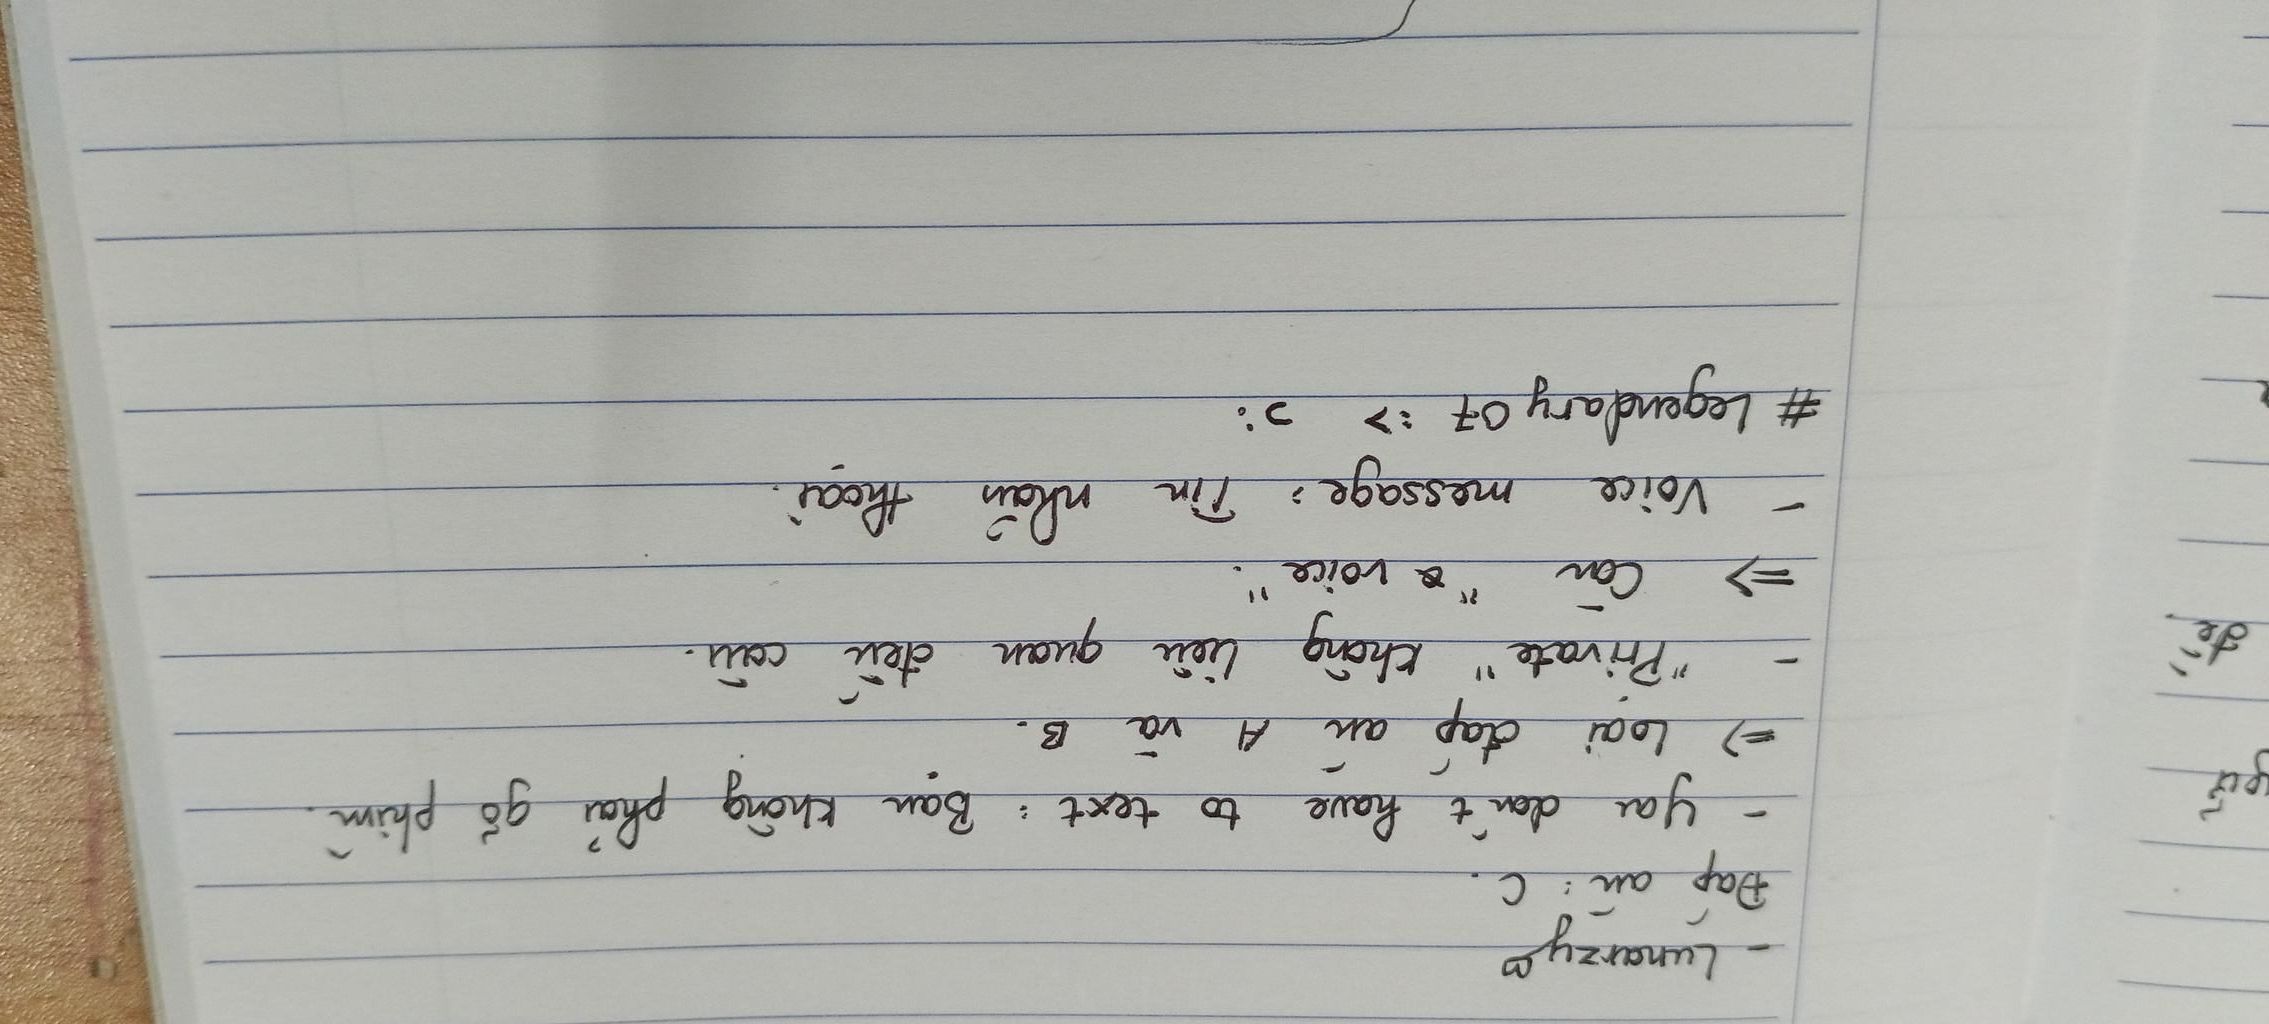 - Lunarzy
Đáp án: C.
- You don't have to text: Bạn không phải gõ phím.
=> Loại đáp án A và B.
- "Private" không liên quan đến câu.
=> Còn "voice".
- Voice message: Tin nhắn thoại.
# Legendary 07 :> ɔ: